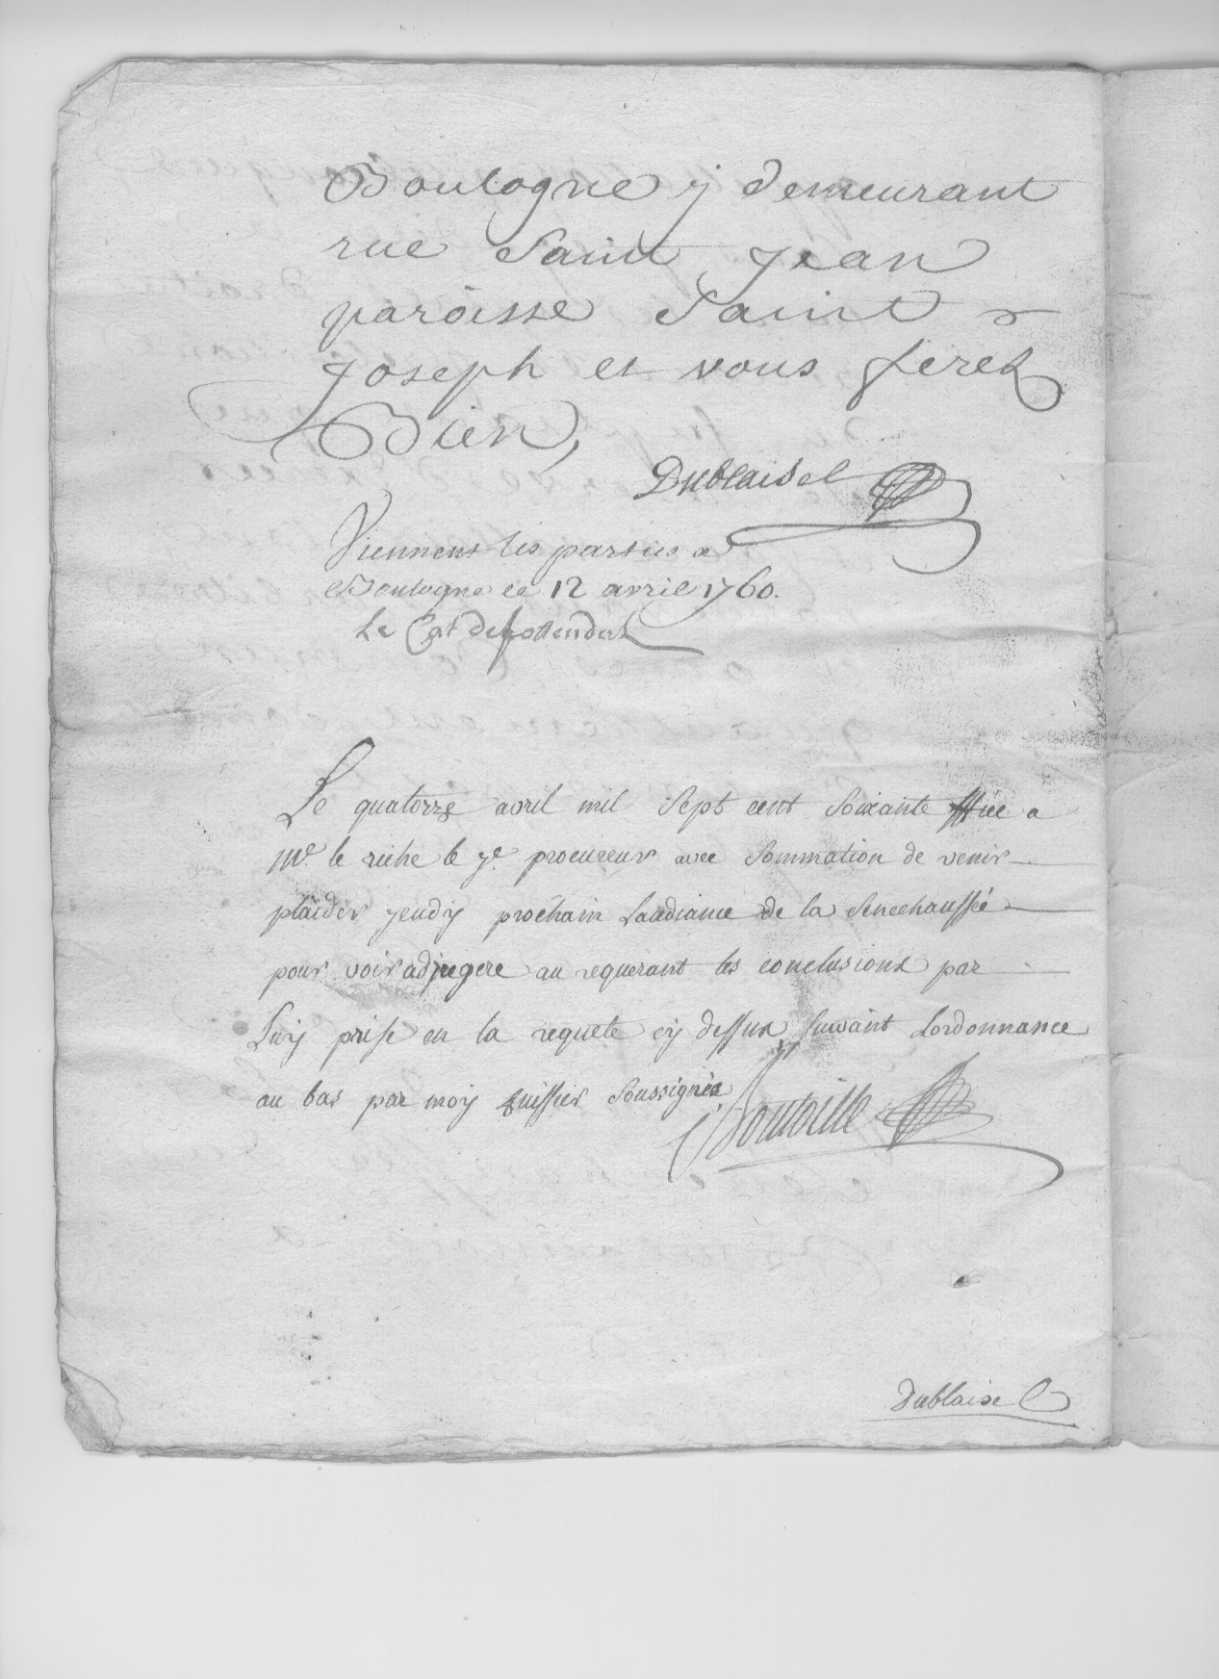 Boulogne y demeurant
rue Saint Jean
paroisse Saint
Joseph et vous ferez
Bien,
Dublaisel
Viennent les parties a
Boulogne le 12 avril 1760.
Le
Le quatorze avril mil Sept cent Soixante a
Me. le riche le je. procureur avec Sommation de venir
plaider jeudy prochain Laudiance de la Senechaussé
pour voir adjugere au requerant les conclusions par
Luy prise en la requete cy dessus suivant Lordonnance
au bas par moy huissier Soussignée
Dublaisel